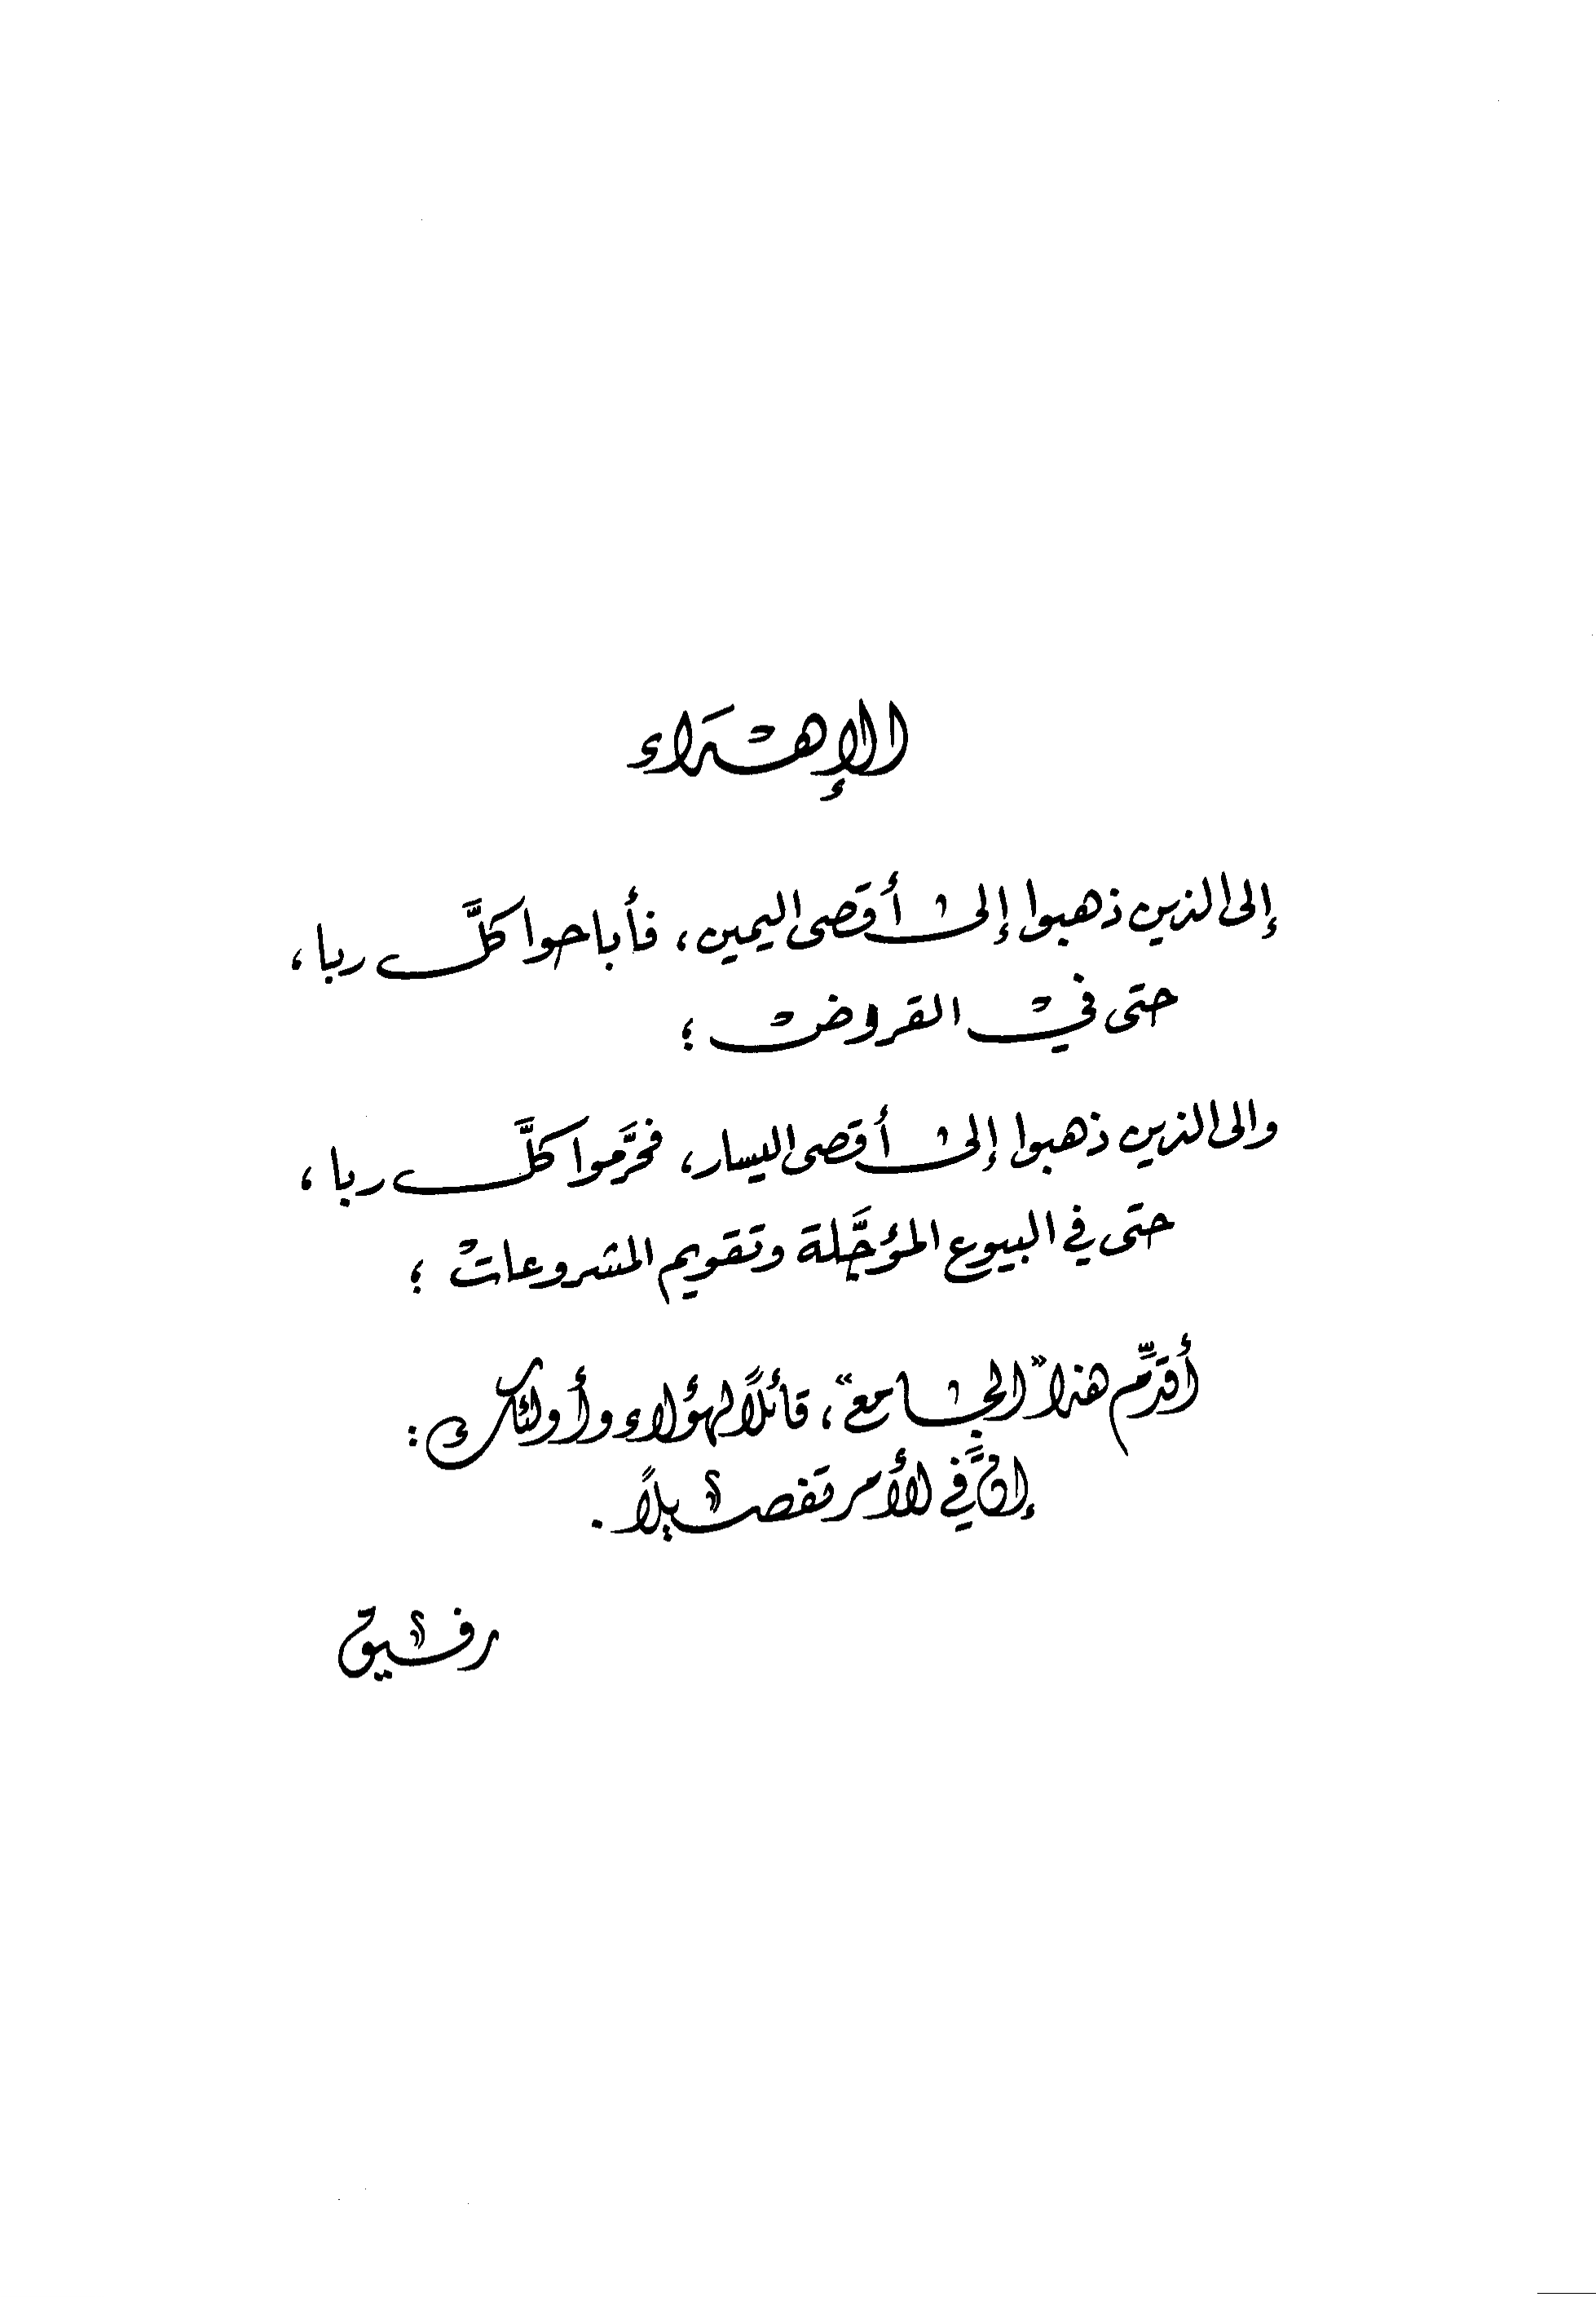 الإهداء
إلى الذين ذهبوا إلى أقصى اليمين، فأباحوا كلَّ ربا،
حتى في القروض؛
والى الذين ذهبوا إلى أقصى اليسار، فحرَّموا كلَّ ربا،
حتى في البيوع المؤجَّلة وتقويم المشروعات؛
أقدِّم هذا "الجامع"، قائلاً لهؤلاء وأولئك:
إنَّ في الأمر تفصيلاً.
رفيق